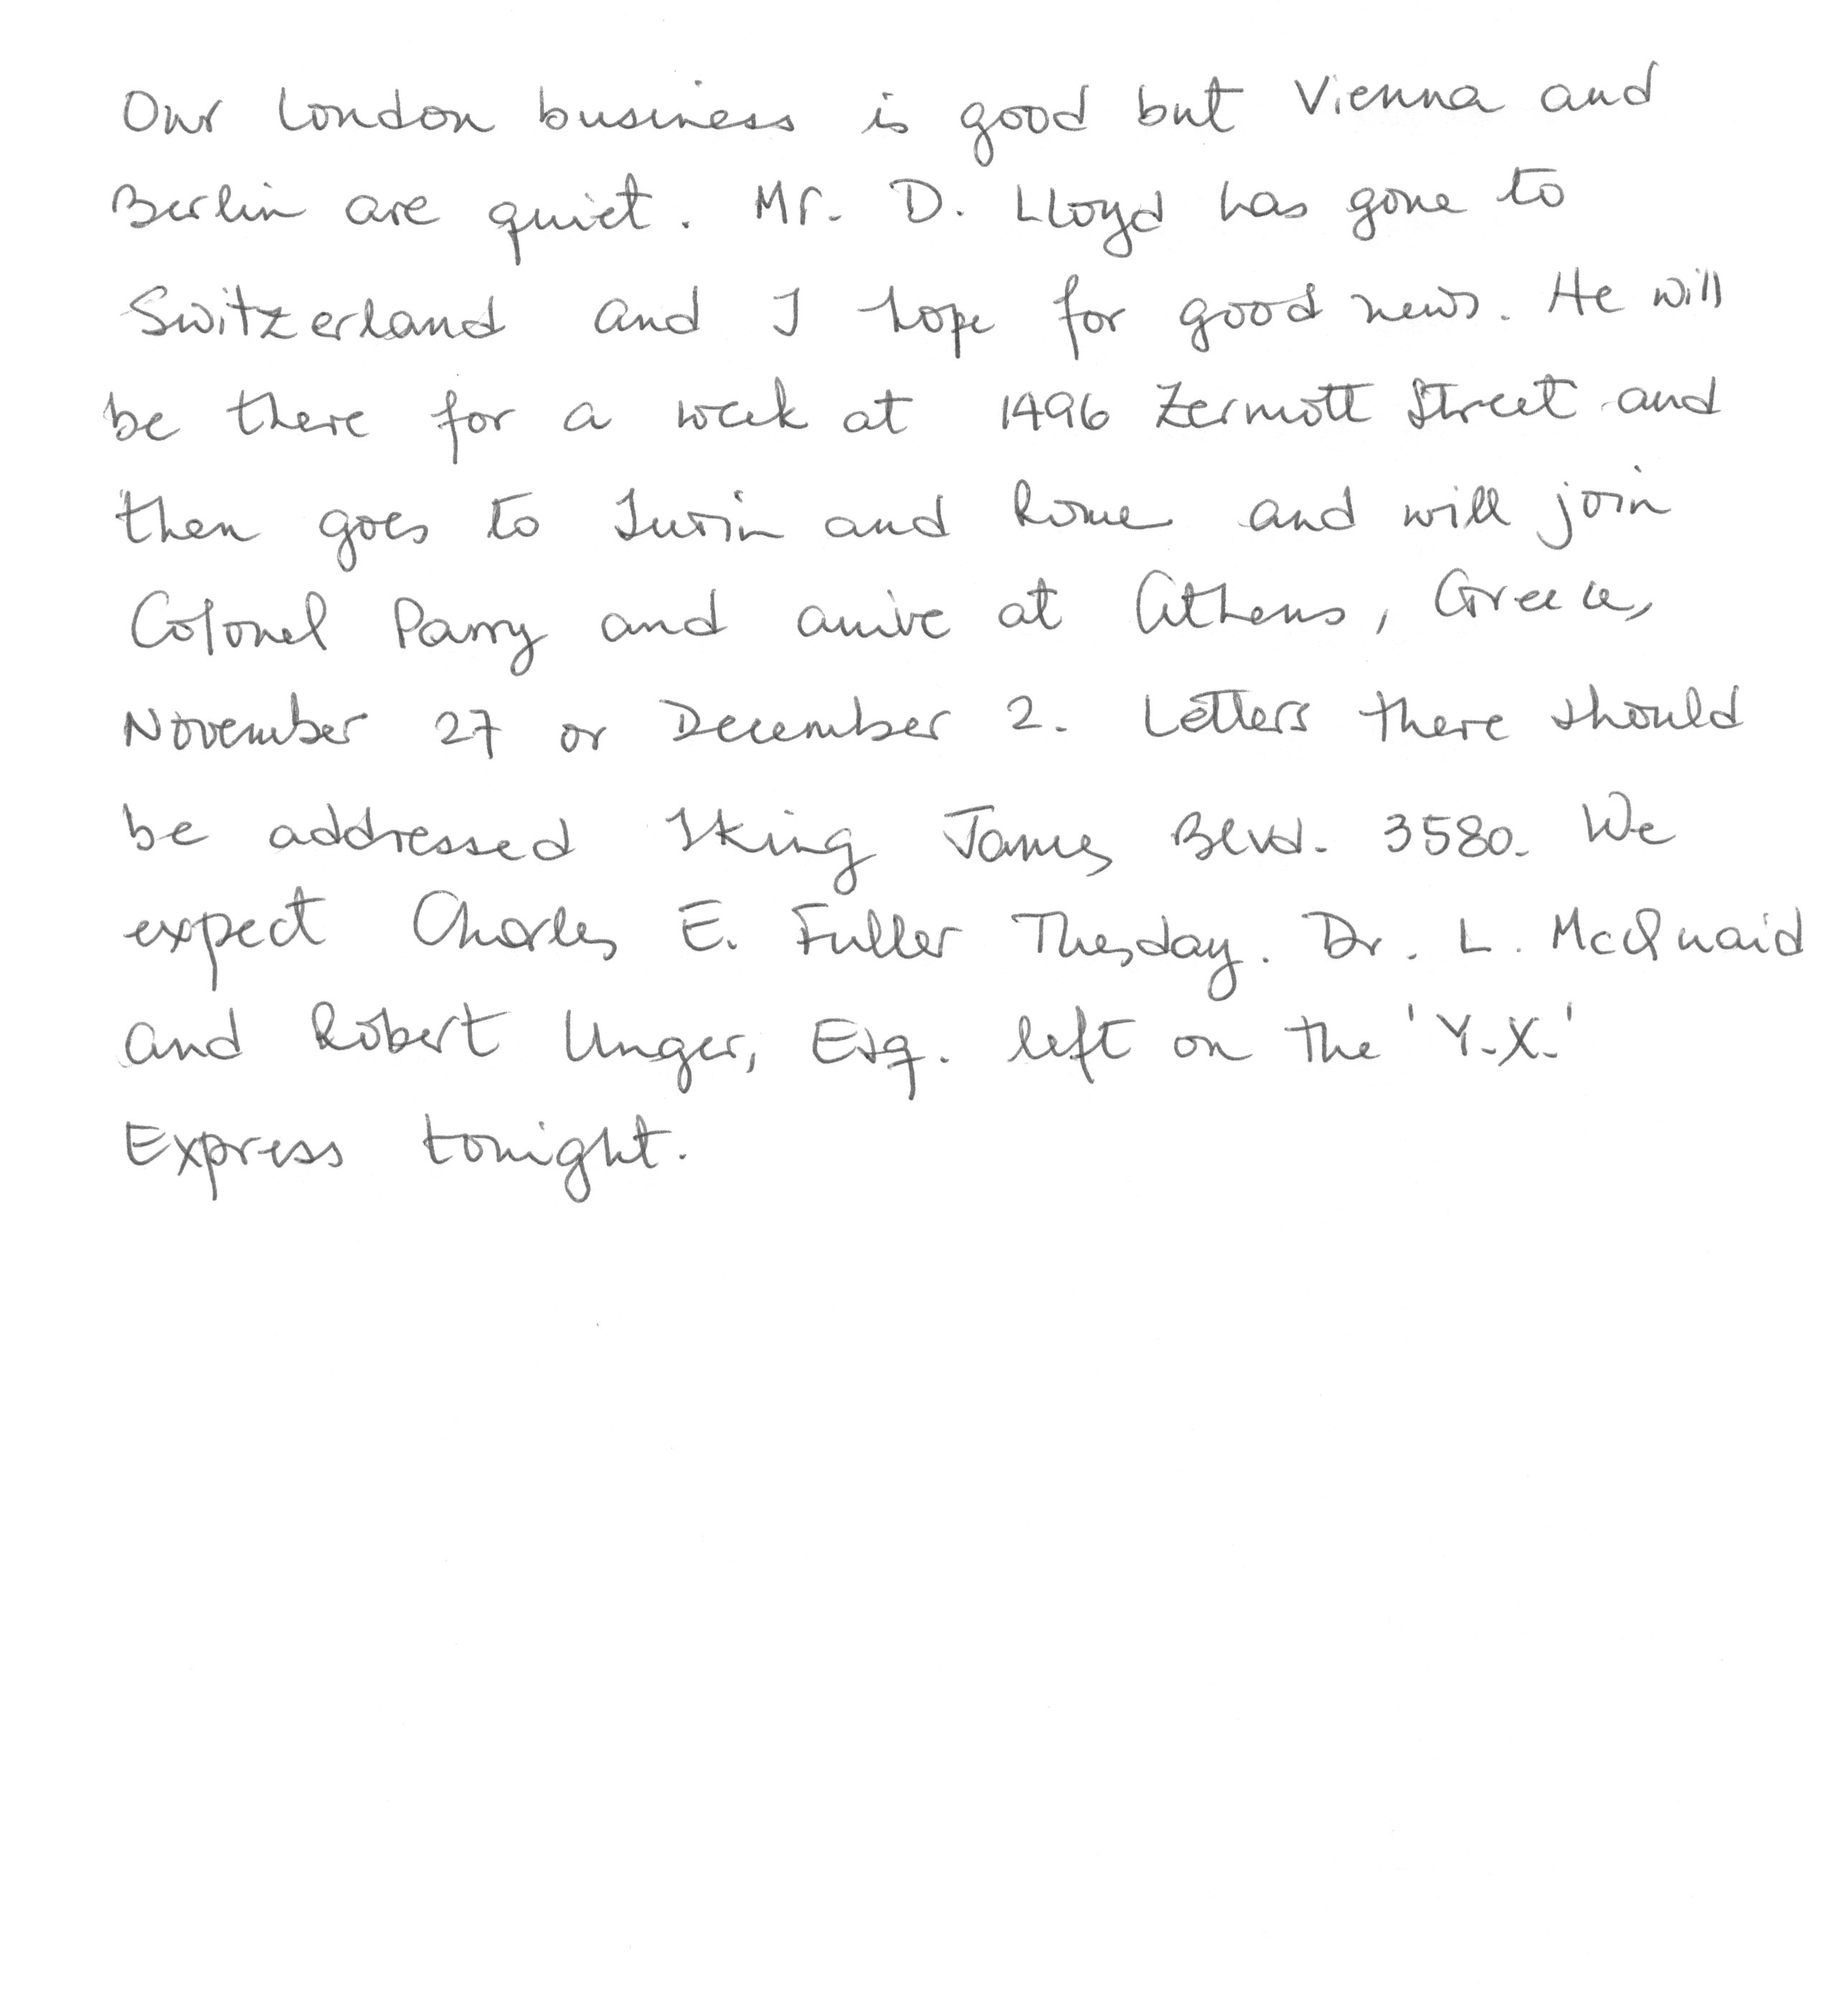 Our London business is good but Vienna and
Berlin are quiet. Mr. D. Lloyd has gone to
Switzerland and I hope for good news. He will
be there for a week at 1496 Zermott Street and
then goes to Turin and Rome and will join
Colonel Parry and arrive at Athens, Greece,
November 27 or December 2. Letters there should
be addressed King James Blvd. 3580. We
expect Charles E. Fuller Thesday. Dr. L. McQuaid
and Robert Unger, Esq. left on the 'Y.X.'
Express tonight.